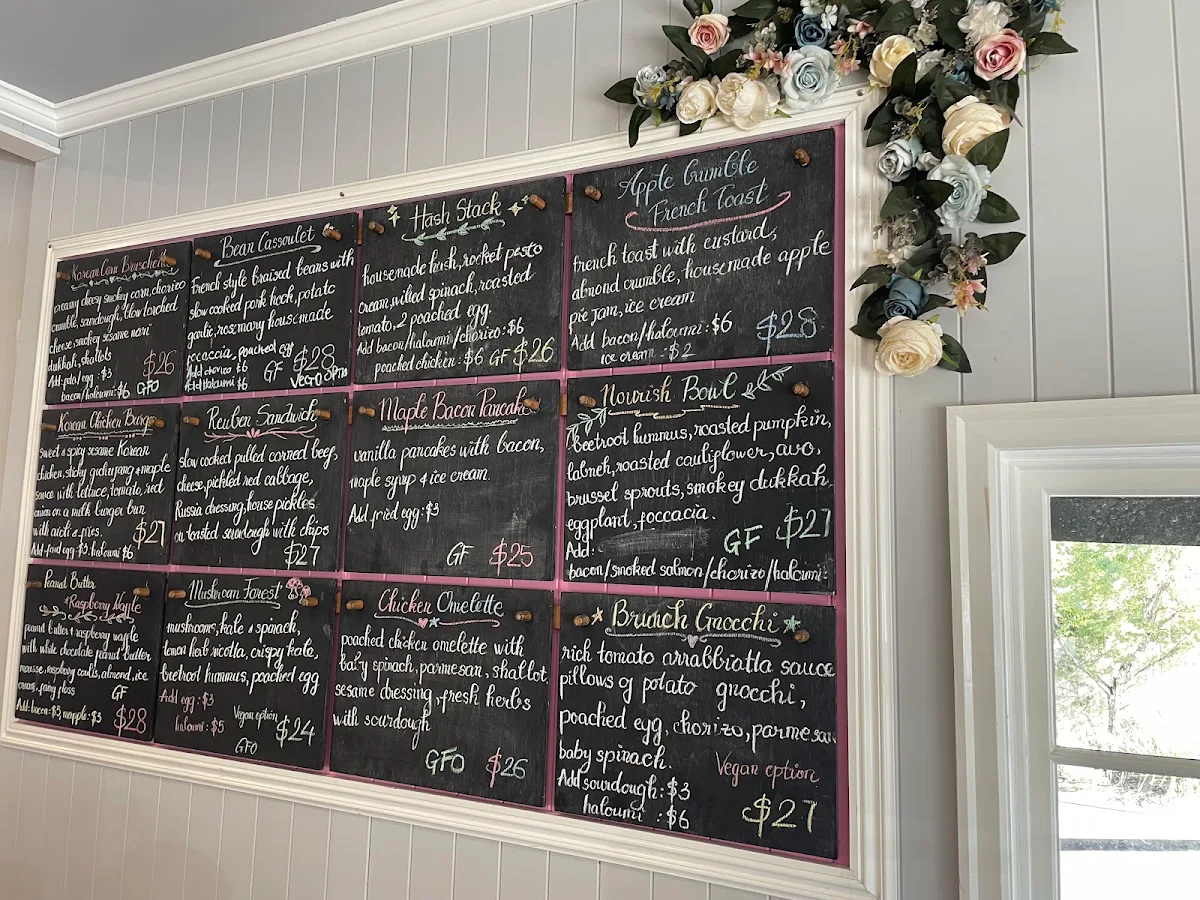 Korean Corn Bruschetta
creamy cheesy smokey corn, chorizo
crumble, sandough, blow torched
cheese, smokey sesame nori
dukkah, shallots
$26
Add: feta/egg: $3
bacon/haloumi: $6 GFO
Bean Cassoulet
French style braised beans with
slow cooked pork hock, potato
garlic, rosemary housemade
foccaccia, poached egg
Add chorizo $6
Add haloumi $6
GF $28
VEGO $
Hash Stack
housemade hash, rocket pesto
cream, wilted spinach, roasted
tomato, 2 poached egg.
Add bacon/haloumi/chorizo: $6
poached chicken: $6 GF $26
Apple Crumble
French Toast
french toast with custard,
almond crumble, housemade apple
pie jam, ice cream
Add bacon/haloumi: $6
ice cream: $2
$28
Korean Chicken Burger
sweet & spicy sesame Korean
chicken, sticky gochujang & maple
sauce with lettuce, tomato, red
onion on a milk burger bun
with aioli & fries.
$27
Add fried egg: $3, haloumi $6
Reuben Sandwich
slow cooked pulled corned beef,
cheese, pickled red cabbage,
Russia dressing, house pickles
on toasted sourdough with chips
$27
Maple Bacon Pancake
vanilla pancakes with bacon,
maple syrup & ice cream.
Add fried egg: $3
GF $25
Nourish Bowl
beetroot hummus, roasted pumpkin,
labneh, roasted cauliflower, avo,
brussel sprouts, smokey dukkah,
eggplant, foccacia.
GF $27
Add:
bacon/smoked salmon/chorizo/haloumi:
Peanut Butter
& Raspberry Waffle
peanut butter & raspberry waffle
with white chocolate peanut butter
mousse, raspberry coulis, almond, ice
cream, fairy floss
GF
Add: bacon: $5, maple: $3
$28
Mushroom Forest
mushrooms, kale & spinach,
lemon herb ricotta, crispy kale,
beetroot hummus, poached egg
Add egg: $3
haloumi: $5
Vegan option $24
GFO
Chicken Omelette
poached chicken omelette with
baby spinach, parmesan, shallot,
sesame dressing, fresh herbs
with sourdough
GFO $26
Brunch Gnocchi
rich tomato arrabbiatta sauce
pillows of potato gnocchi,
poached egg, chorizo, parmesan
baby spinach.
Vegan option
Add sourdough: $3
haloumi: $6
$27